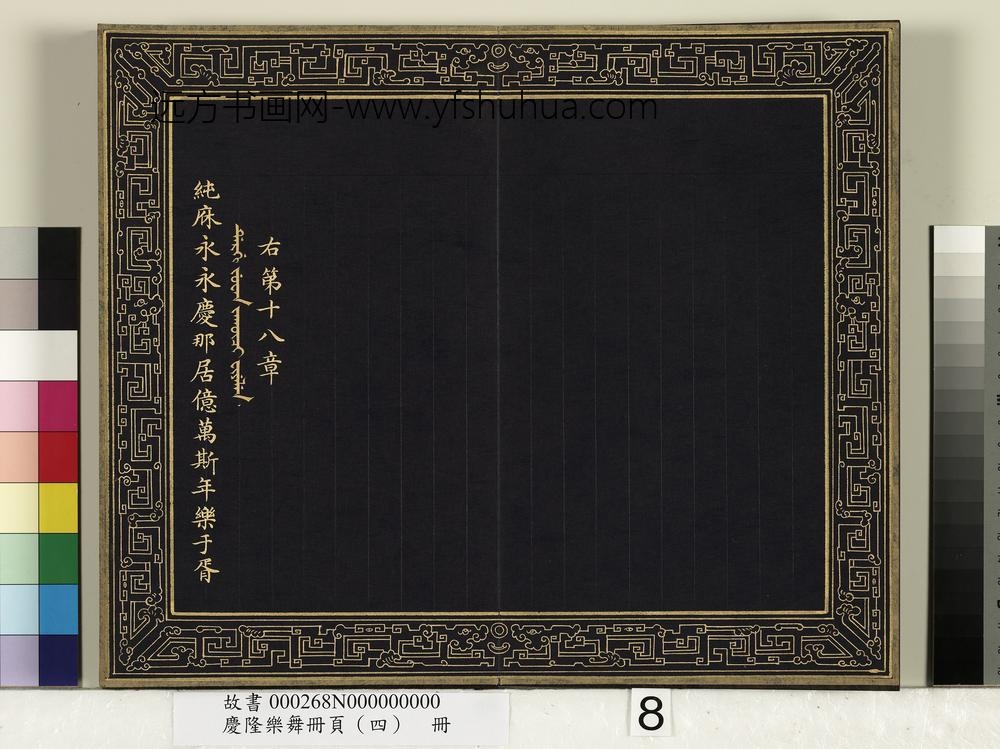 远方书画网-www.yfshuhua.com
純庥永永慶那居億萬斯年樂于胥
右第十八章
故書 000268N000000000
慶隆樂舞冊頁（四） 冊
8